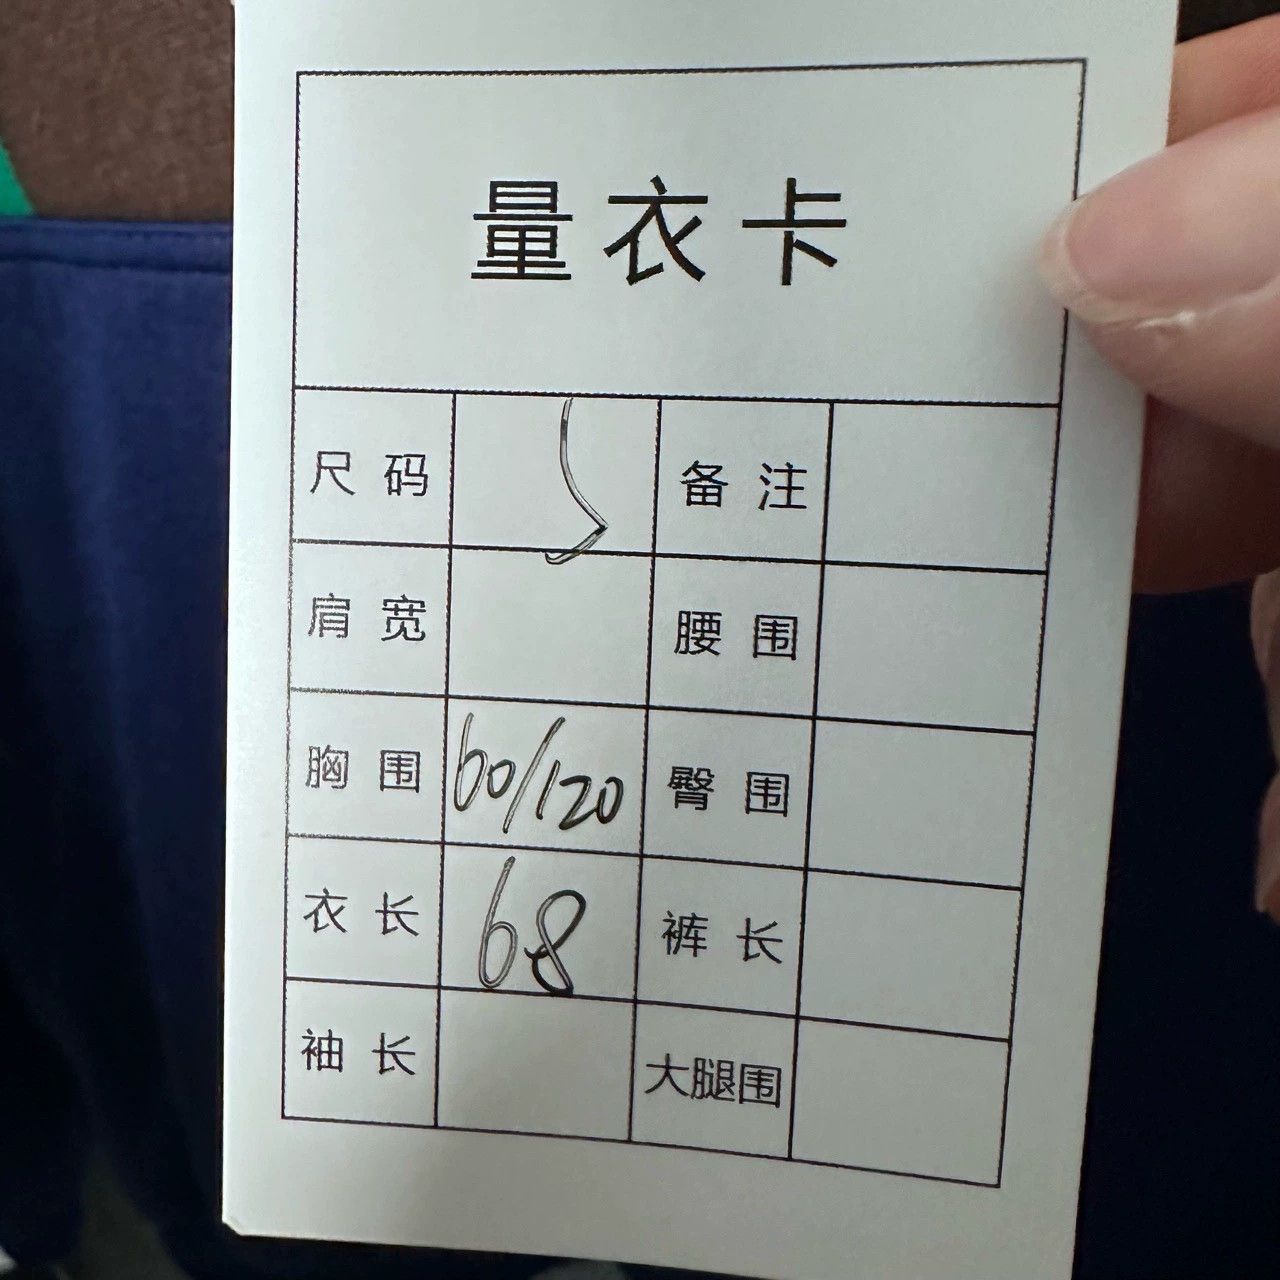 量衣卡
尺码 备注
肩宽 腰围
胸围 60/120 臀围
衣长 68 裤长
袖长 大腿围